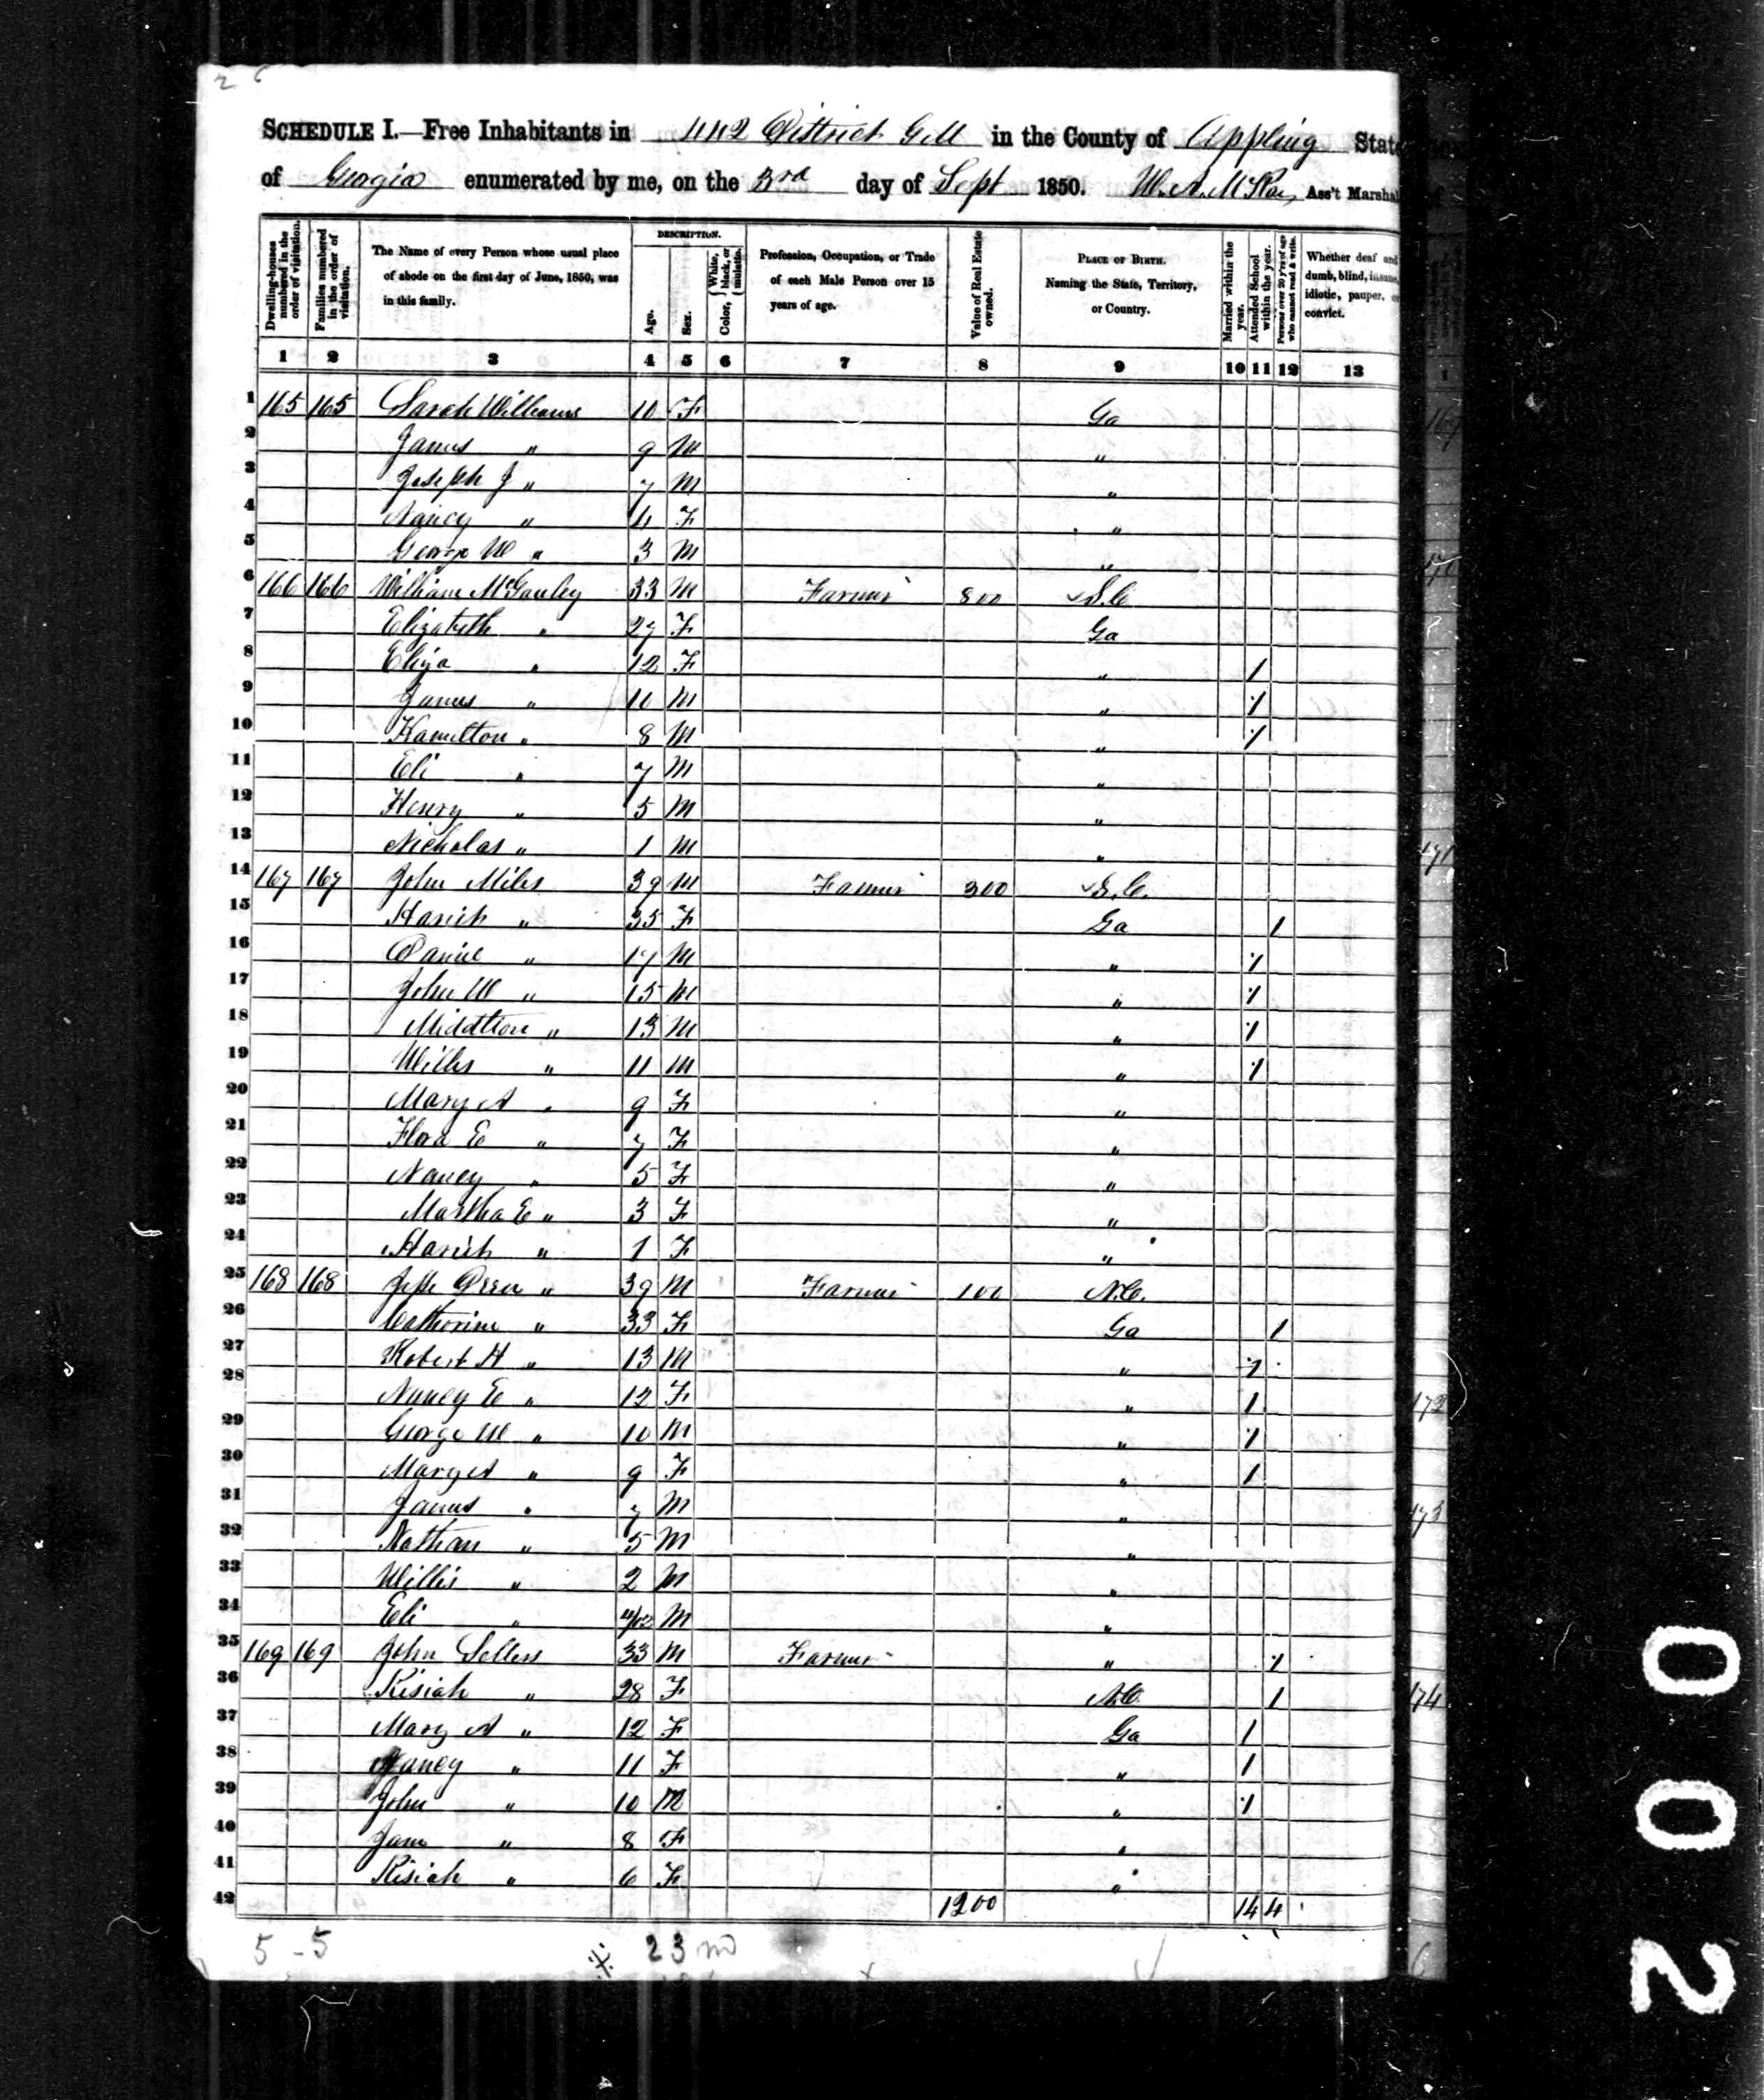 2 6
SCHEDULE I.—Free Inhabitants in 442 District G M in the County of Appling State
of Georgia enumerated by me, on the 3rd day of Sept 1850. Ass't Marshal
Dwelling-houses numbered in the order of visitation. Families numbered in the order of visitation. The Name of every Person whose usual place of abode on the first day of June, 1850, was in this family. DESCRIPTION. Age. Sex. Color, { White, black, or mulatto. Profession, Occupation, or Trade of each Male Person over 15 years of age. Value of Real Estate owned. PLACE OF BIRTH. Naming the State, Territory, or Country. Married within the year. Attended School within the year. Persons over 20 y'rs of age who cannot read & write. Whether deaf and dumb, blind, insane, idiotic, pauper, or convict.
1 2 3 4 5 6 7 8 9 10 11 12 13
1 165 165 Sarah Williams 10 F Ga
2 James " 9 M "
3 Joseph J " 7 M "
4 Nancy " 4 F "
5 George W " 3 M "
6 166 166 William McGauley 33 M Farmer 800 S.C
7 Elizabeth " 27 F Ga
8 Eliza " 12 F " 1
9 James " 10 M " 1
10 Hamilton " 8 M " 1
11 Eli " 7 M "
12 Henry " 5 M "
13 Nicholas " 1 M "
14 167 167 John Miles 39 M Farmer 300 S.C.
15 " 35 F Ga 1
16 Daniel " 17 M " 1
17 John W " 15 M " 1
18 Middleton " 13 M " 1
19 Willis " 11 M " 1
20 Mary A " 9 F "
21 Flora E " 7 F "
22 Nancy " 5 F "
23 Martha E " 3 F "
24 " 1 F "
25 168 168 Jesse " 39 M Farmer 100 N.C.
26 Catherine " 33 F Ga 1
27 Robert H " 13 M " 1
28 Nancy E " 12 F " 1
29 George W " 10 M " 1
30 Mary A " 9 F " 1
31 James " 7 M "
32 Nathan " 5 M "
33 Willis " 2 M "
34 Eli " M "
35 169 169 John Sellers 33 M Farmer " 1
36 Kisiah " 28 F N.C. 1
37 Mary A " 12 F Ga 1
38 Nancy " 11 F " 1
39 John " 10 M " 1
40 Jane " 8 F "
41 Kisiah " 6 F "
42 1200 14 4
5 - 5 23 m
002